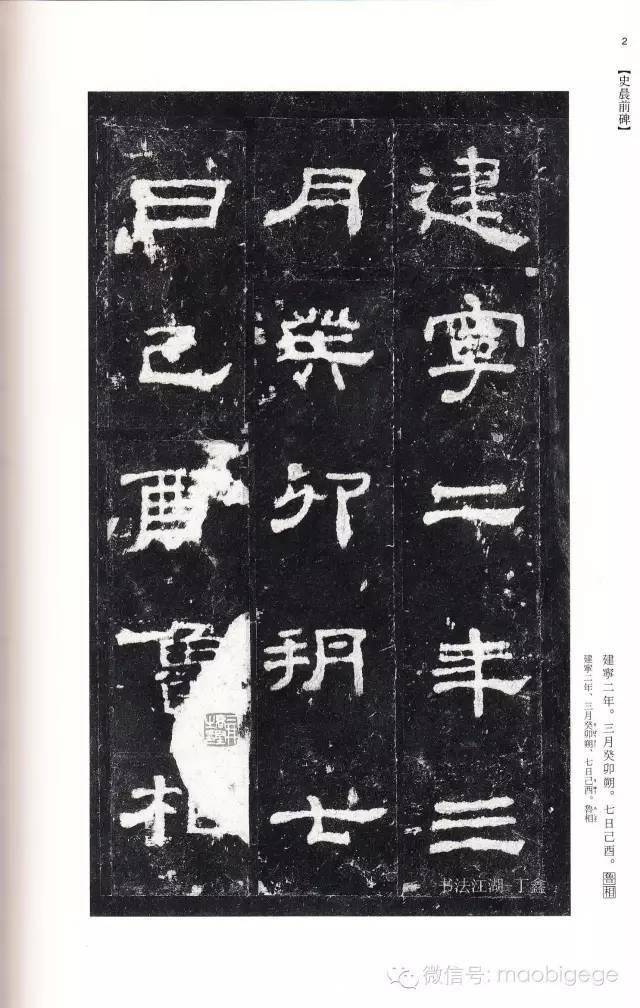 2
【史晨前碑】
建寧二年三
月癸卯朔七
日己酉魯相
建寧二年。三月癸卯朔。七日己酉。魯相
建寧二年、三月癸卯朔、七日己酉。魯相
书法江湖 丁鑫
微信号: maobigege